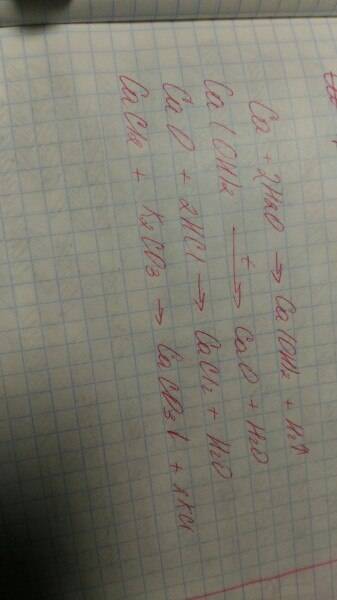 Ca + 2H2O → Ca(OH)2 + H2↑
Ca(OH)2 →t CaO + H2O
CaO + 2HCl → CaCl2 + H2O
CaCl2 + K2CO3 → CaCO3↓ + 2KCl